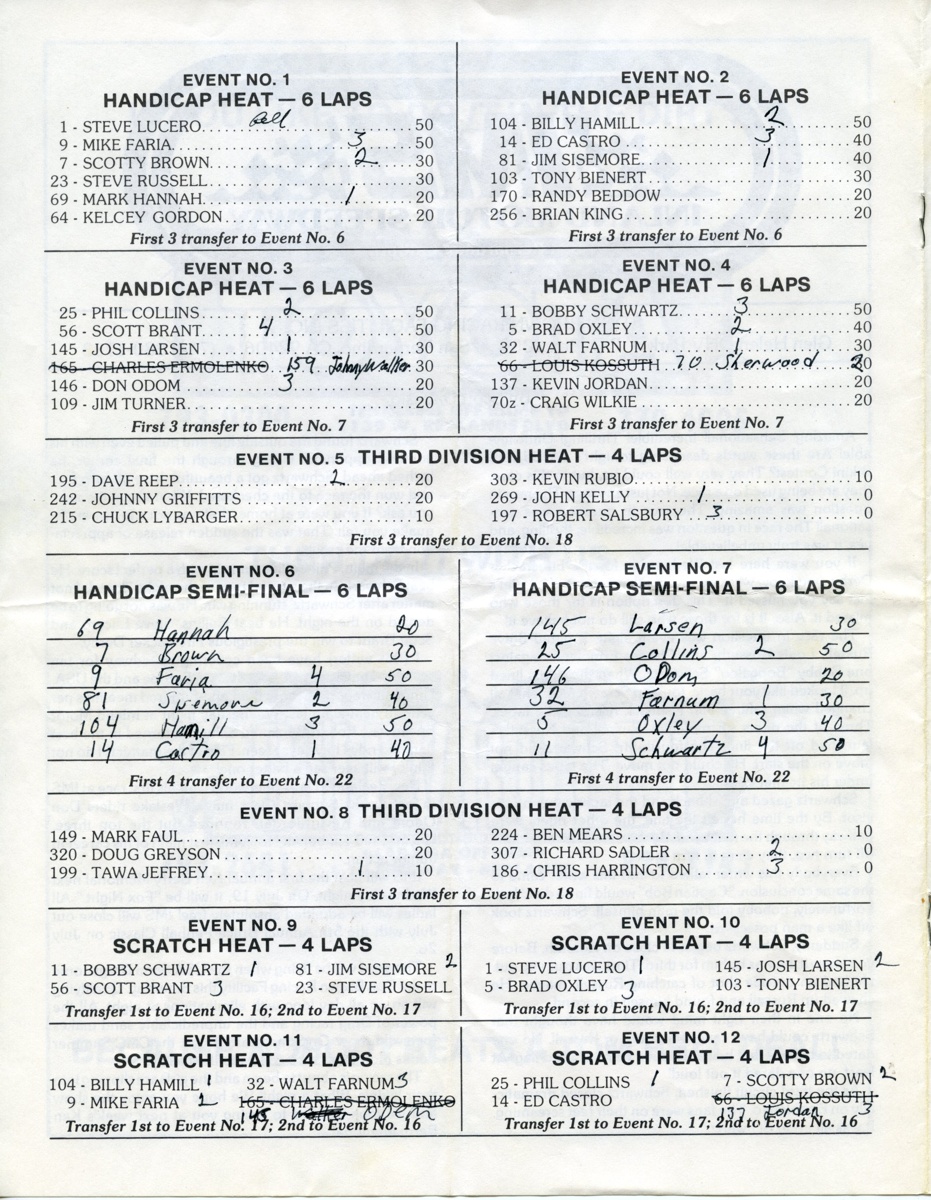 EVENT NO. 1
HANDICAP HEAT — 6 LAPS
1 - STEVE LUCERO 50
9 - MIKE FARIA 3 50
7 - SCOTTY BROWN 2 30
23 - STEVE RUSSELL 30
69 - MARK HANNAH 1 20
64 - KELCEY GORDON 20
First 3 transfer to Event No. 6
EVENT NO. 2
HANDICAP HEAT — 6 LAPS
104 - BILLY HAMILL 2 50
14 - ED CASTRO 3 40
81 - JIM SISEMORE 1 40
103 - TONY BIENERT 30
170 - RANDY BEDDOW 20
256 - BRIAN KING 20
First 3 transfer to Event No. 6
EVENT NO. 3
HANDICAP HEAT — 6 LAPS
25 - PHIL COLLINS 2 50
56 - SCOTT BRANT 4 50
145 - JOSH LARSEN 1 30
165 - CHARLES ERMOLENKO 159 Johnny Walker 30
146 - DON ODOM 3 20
109 - JIM TURNER 20
First 3 transfer to Event No. 7
EVENT NO. 4
HANDICAP HEAT — 6 LAPS
11 - BOBBY SCHWARTZ 3 50
5 - BRAD OXLEY 2 40
32 - WALT FARNUM 1 30
66 - LOUIS KOSSUTH 70 Sherwood 20
137 - KEVIN JORDAN 20
70z - CRAIG WILKIE 20
First 3 transfer to Event No. 7
EVENT NO. 5 THIRD DIVISION HEAT — 4 LAPS
195 - DAVE REEP 2 20
242 - JOHNNY GRIFFITTS 20
215 - CHUCK LYBARGER 10
303 - KEVIN RUBIO 10
269 - JOHN KELLY 1 0
197 - ROBERT SALSBURY 3 0
First 3 transfer to Event No. 18
EVENT NO. 6
HANDICAP SEMI-FINAL — 6 LAPS
69 Hannah 20
7 Brown 30
9 Faria 4 50
81 Sisemore 2 40
104 Hamill 3 50
14 Castro 1 40
First 4 transfer to Event No. 22
EVENT NO. 7
HANDICAP SEMI-FINAL — 6 LAPS
145 Larsen 30
25 Collins 2 50
146 ODom 20
32 Farnum 1 30
5 Oxley 3 40
11 Schwartz 4 50
First 4 transfer to Event No. 22
EVENT NO. 8 THIRD DIVISION HEAT — 4 LAPS
149 - MARK FAUL 20
320 - DOUG GREYSON 20
199 - TAWA JEFFREY 1 10
224 - BEN MEARS 10
307 - RICHARD SADLER 2 0
186 - CHRIS HARRINGTON 3 0
First 3 transfer to Event No. 18
EVENT NO. 9
SCRATCH HEAT — 4 LAPS
11 - BOBBY SCHWARTZ 1 81 - JIM SISEMORE 2
56 - SCOTT BRANT 3 23 - STEVE RUSSELL
Transfer 1st to Event No. 16; 2nd to Event No. 17
EVENT NO. 10
SCRATCH HEAT — 4 LAPS
1 - STEVE LUCERO 1 145 - JOSH LARSEN 2
5 - BRAD OXLEY 3 103 - TONY BIENERT
Transfer 1st to Event No. 16; 2nd to Event No. 17
EVENT NO. 11
SCRATCH HEAT — 4 LAPS
104 - BILLY HAMILL 1 32 - WALT FARNUM 3
9 - MIKE FARIA 2 165 - CHARLES ERMOLENKO
Walter Odem
Transfer 1st to Event No. 17; 2nd to Event No. 16
EVENT NO. 12
SCRATCH HEAT — 4 LAPS
25 - PHIL COLLINS 1 7 - SCOTTY BROWN 2
14 - ED CASTRO 66 - LOUIS KOSSUTH
137 Jordan 3
Transfer 1st to Event No. 17; 2nd to Event No. 16